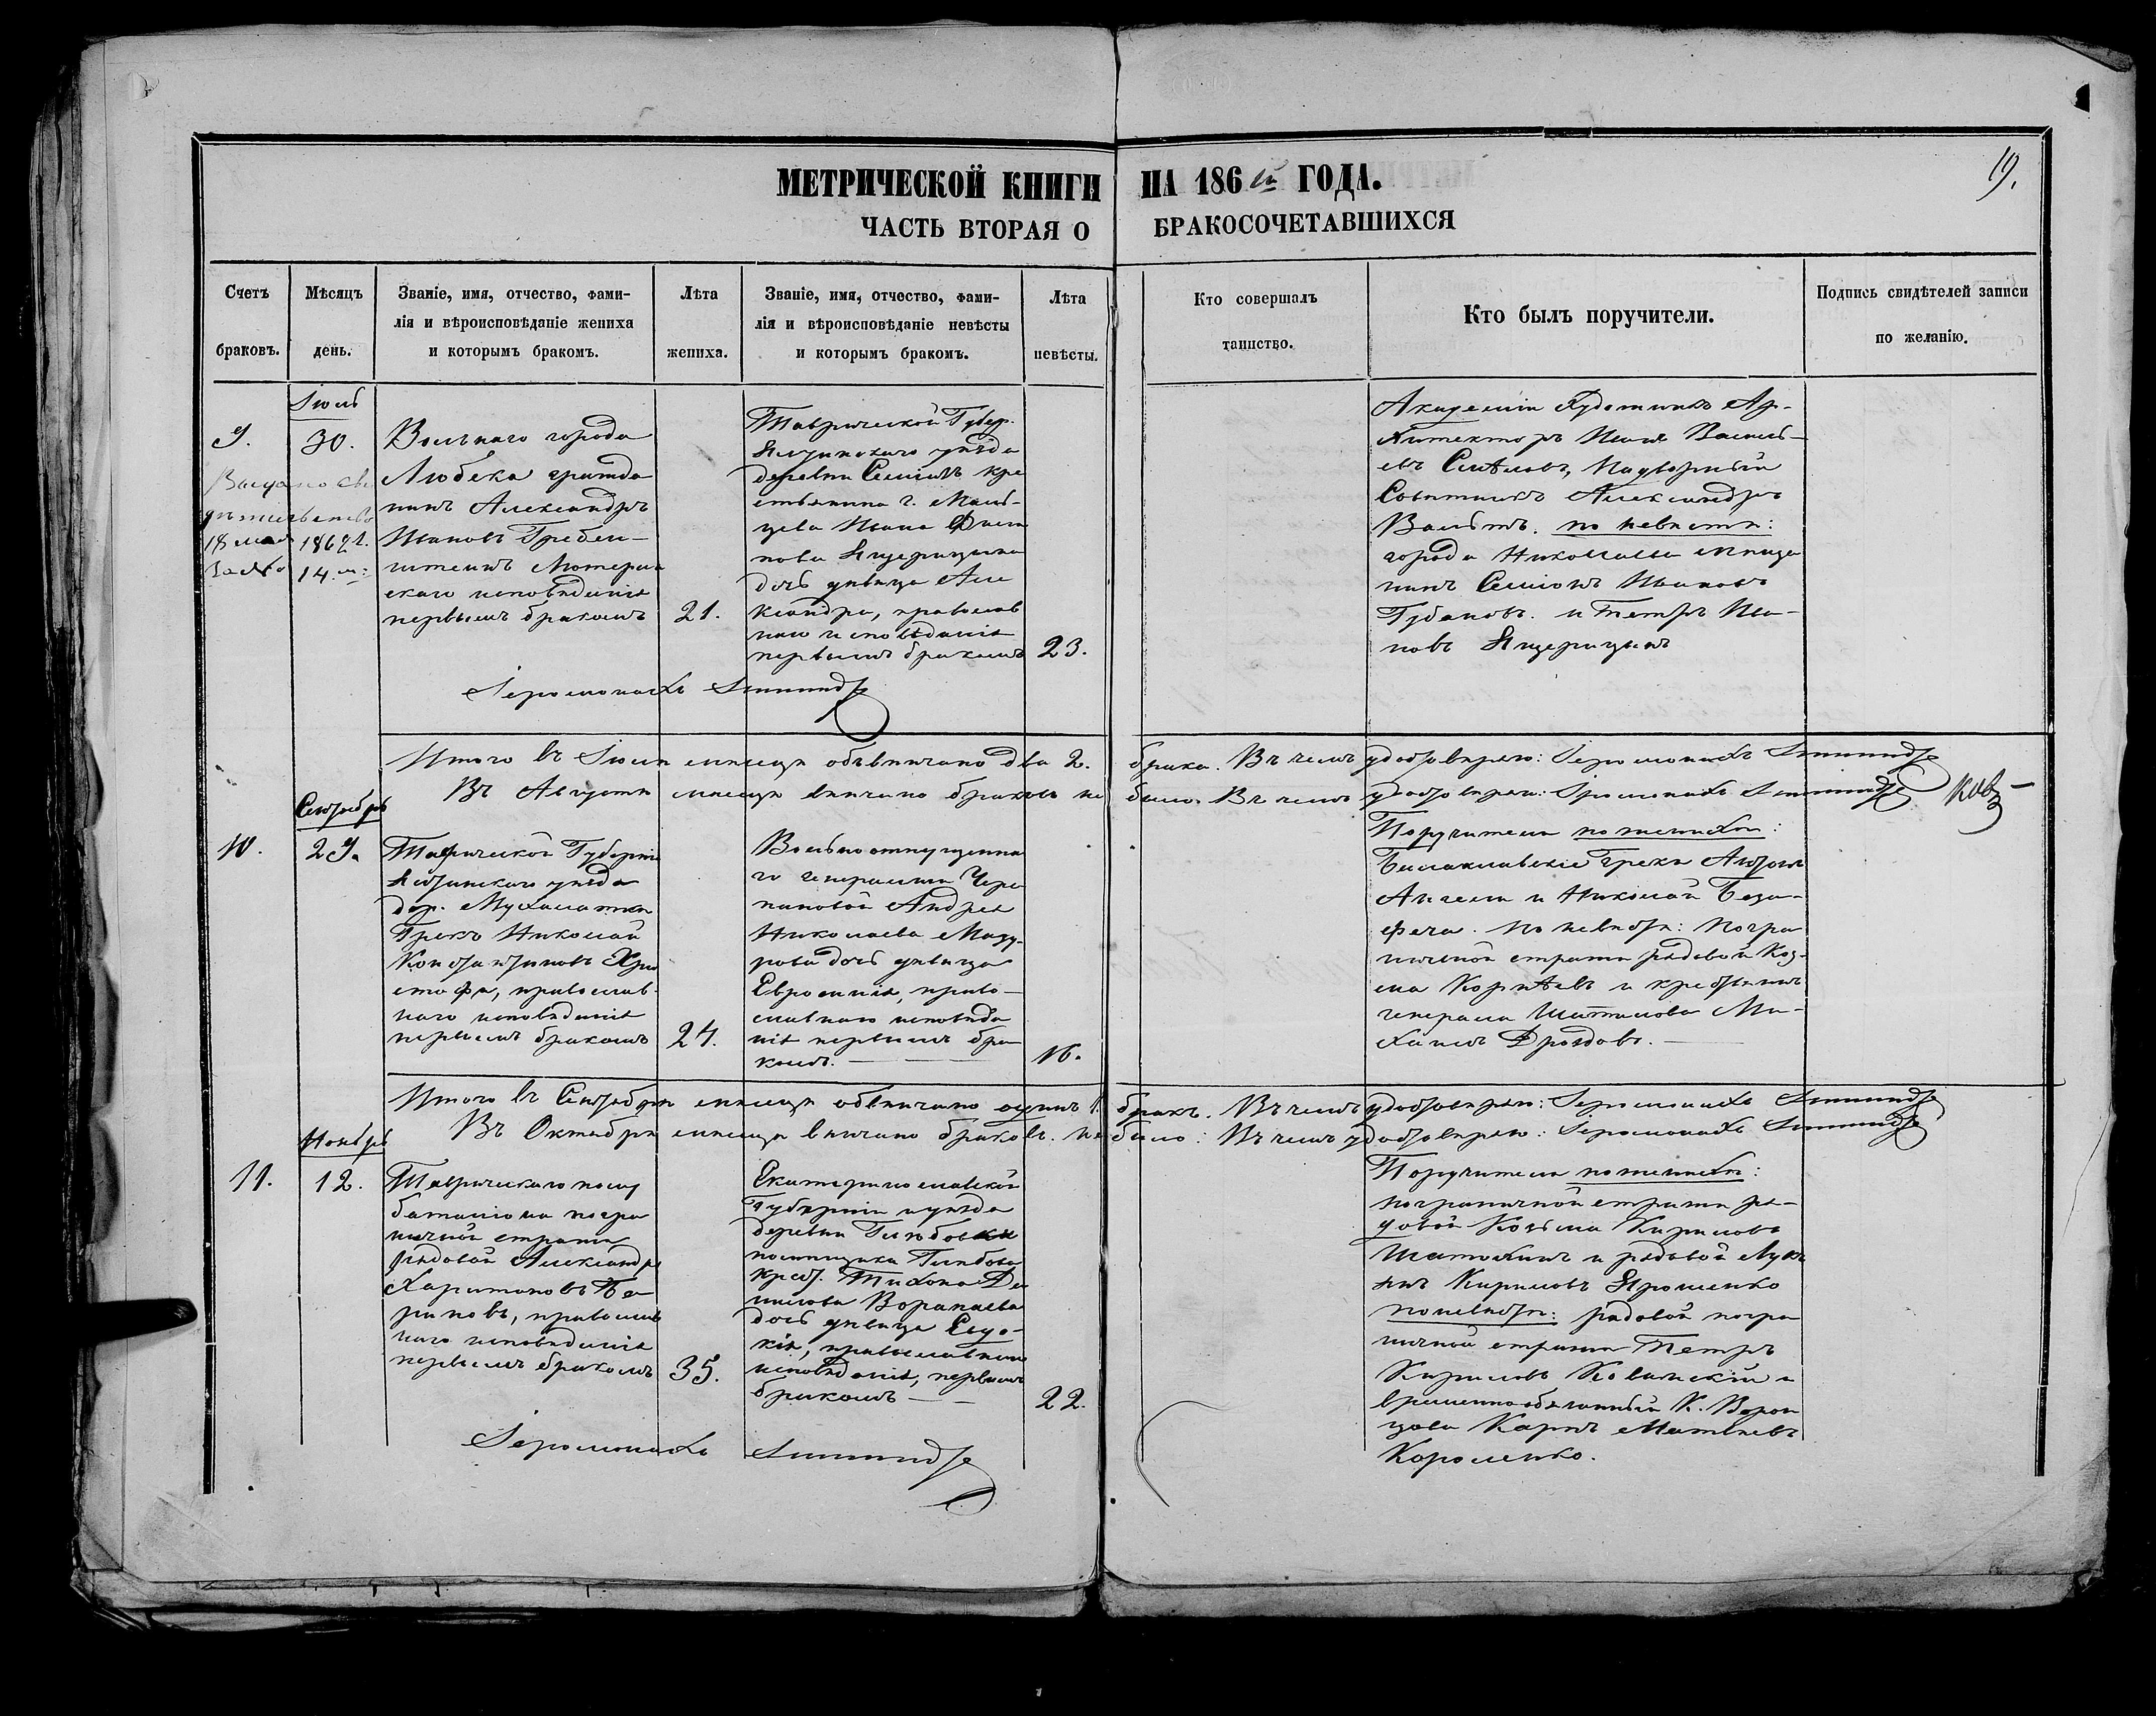 19.
МЕТРИЧЕСКОЙ КНИГИ НА 186 ГОДА.
ЧАСТЬ ВТОРАЯ О БРАКОСОЧЕТАВШИХСЯ
Счетъ браковъ.
Мѣсяцъ день.
Званіе, имя, отчество, фами-
лія и вѣроисповѣданіе жениха
и которымъ бракомъ.
Лѣта жениха.
Званіе, имя, отчество, фами-
лія и вѣроисповѣданіе невѣсты
и которымъ бракомъ.
Лѣта невѣсты.
Кто совершалъ
таинство.
Кто былъ поручители.
Подпись свидѣтелей записи
по желанію.
Іюль
9.
30.
Выдано сви
дѣтельство
18 мая 1862 г.
за № 14.
Вольнаго города
Любека гражда
нинъ Александръ
Ивановъ
Лютеран
скаго исповѣданія
первымъ бракомъ
21.
Таврической Губер.
Ялтинскаго уѣзда
деревни кре
стьянина г. Маль-
цева Ивана
нова Ящерицына
дочь дѣвица Але
ксандра, православ
наго исповѣданія
первымъ бракомъ
23.
Академіи Художникъ Ар-
хитекторъ Василь-
евъ Надворный
Совѣтникъ Александръ
по невѣстѣ:
города Николаева мѣща
нинъ Ивановъ
Губановъ. и Петръ Ива-
новъ Ящерицынъ
Іеромонахъ
Итого въ Іюлѣ мѣсяцѣ обвѣнчано два 2. брака. Въ чемъ удостовѣряю: Іеромонахъ
Въ Августѣ мѣсяцѣ вѣнчано браковъ не было. Въ чемъ удостовѣряю: Іеромонахъ
Сентябрь
10.
29.
Таврической Губерніи
Ялтинскаго уѣзда
дер. Мухалатки
Грекъ Николай
Константиновъ Хри
стофа, православ
наго исповѣданія
первымъ бракомъ
24.
Вольноотпущенна
го генеральши Чере
пановой Андрея
Николаева
рова дочь дѣвица
Евросинія, право-
славнаго исповѣда
нія первымъ бра
комъ.
16.
Поручители по женихѣ:
Балаклавскіе Греки
и Николай
По невѣстѣ: погра
ничной стражи рядовой Коз-
ма и крестьянинъ
генерала Шатилова Ми-
хаилъ Дроздовъ.
Итого въ Сентябрѣ мѣсяцѣ обвѣнчано одинъ 1. бракъ. Въ чемъ удостовѣряю: Іеромонахъ
Въ Октябрѣ мѣсяцѣ вѣнчано браковъ не было: Въ чемъ удостовѣряю: Іеромонахъ
Ноябрь
11.
12.
Таврическаго полу
баталіона погра
ничной стражи
рядовой Александръ
Харитоновъ
православ
наго исповѣданія
первымъ бракомъ
35.
Екатеринославской
Губерніи и уѣзда
деревни
помѣщика Глѣбова
крест. Тихона Да
нилова Воропаева
дочь дѣвица Евдо-
кія, православнаго
исповѣданія, первымъ
бракомъ
22.
Поручители по женихѣ:
пограничной стражи ря-
довой Козьма Кириловъ
и рядовой Лукь
янъ Кириловъ Ярошенко
по невѣстѣ: рядовой погра
ничной стражи Петръ
Кириловъ и
временнообязанный К. Ворон
цова Карпъ Матвѣевъ
Короленко.
Іеромонахъ